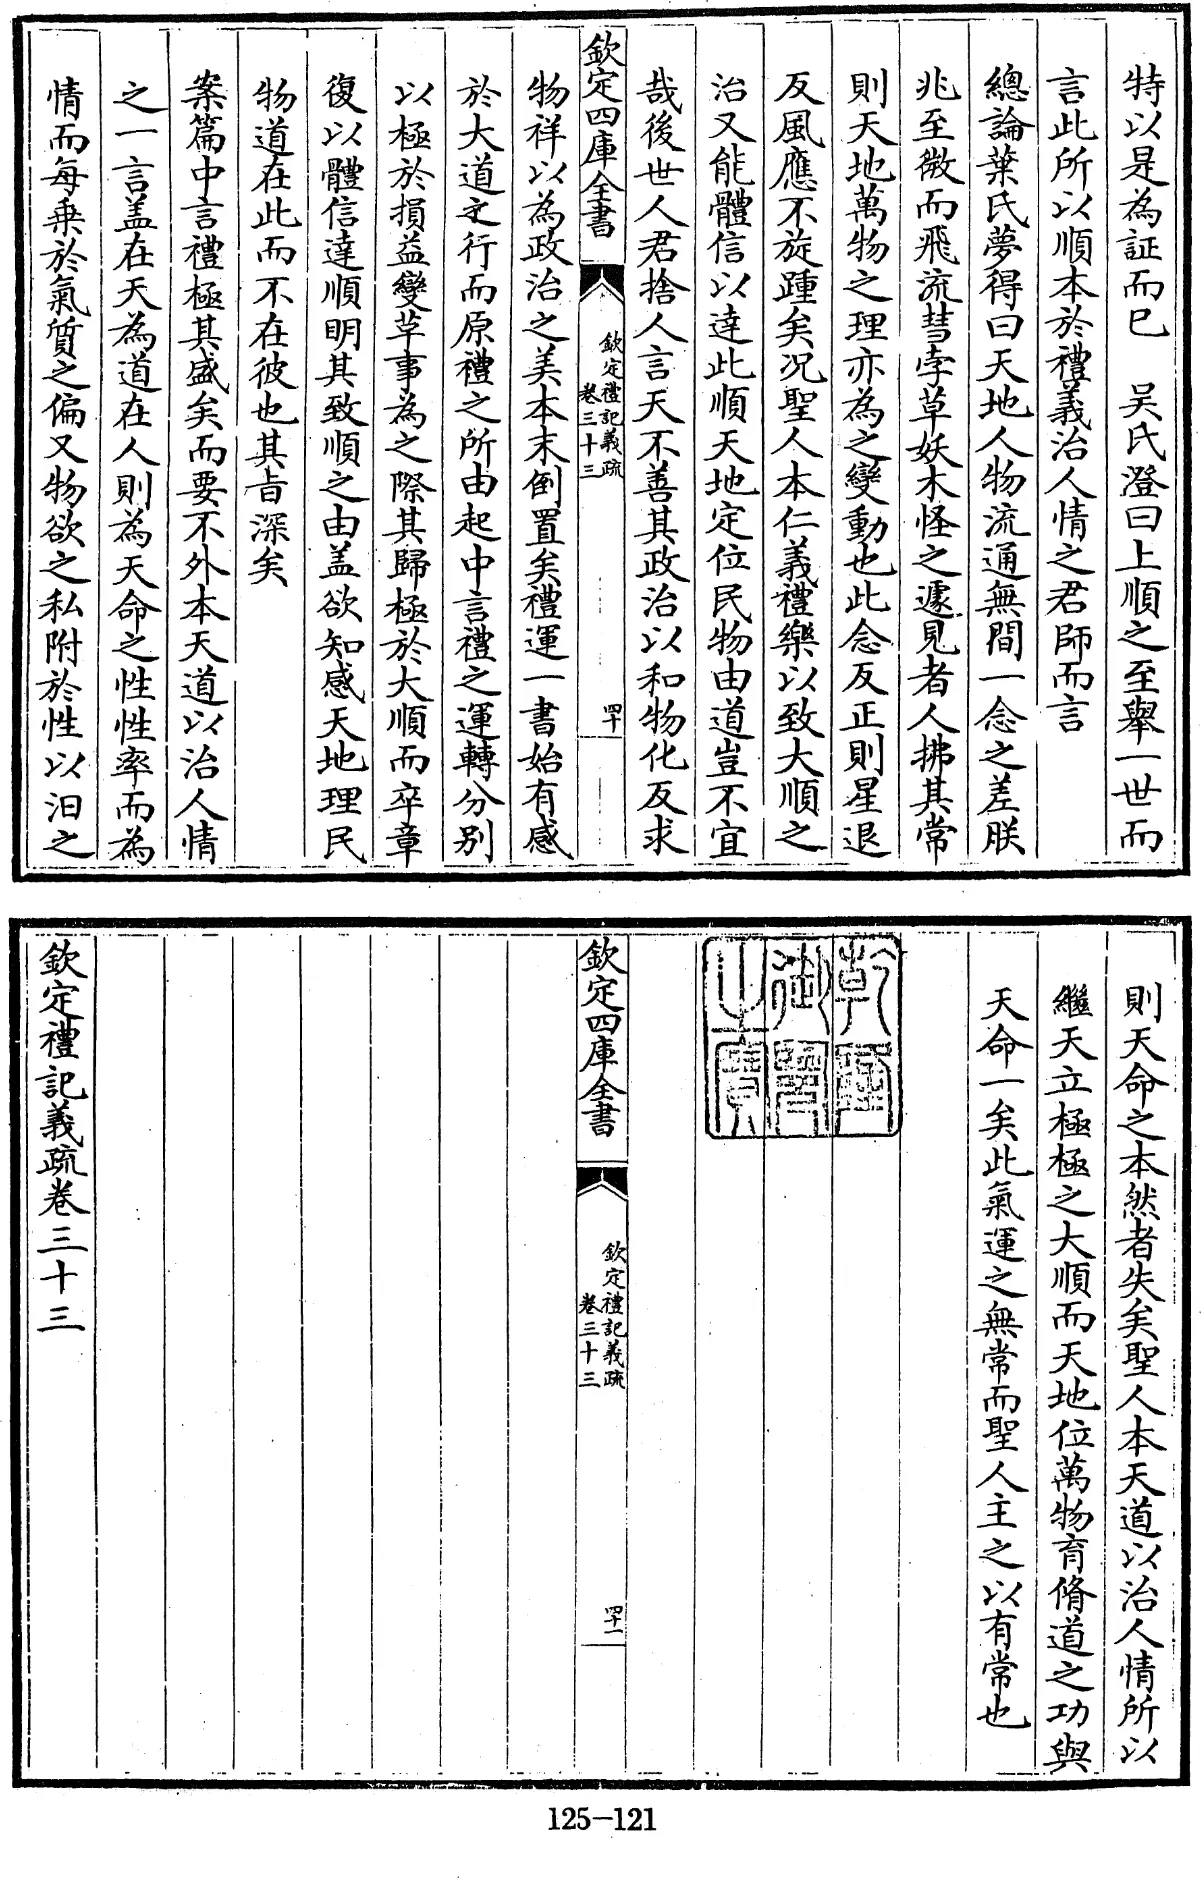 特以是為証而已　吴氏澄曰上順之至舉一世而
言此所以順本於禮義治人情之君師而言
總論葉氏夢得曰天地人物流通無間一念之差朕
兆至微而飛流彗孛草妖木怪之遽見者人拂其常
則天地萬物之理亦為之變動也此念反正則星退
反風應不旋踵矣况聖人本仁義禮樂以致大順之
治又能體信以達此順天地定位民物由道豈不宜
哉後世人君捨人言天不善其政治以和物化反求
欽定四庫全書
欽定禮記義疏
卷三十三
四十
物祥以為政治之美本末倒置矣禮運一書始有感
於大道之行而原禮之所由起中言禮之運轉分别
以極於損益變革事為之際其歸極於大順而卒章
復以體信達順明其致順之由盖欲知感天地理民
物道在此而不在彼也其旨深矣
案篇中言禮極其盛矣而要不外本天道以治人情
之一言盖在天為道在人則為天命之性性率而為
情而每乘於氣質之偏又物欲之私附於性以汩之
則天命之本然者失矣聖人本天道以治人情所以
繼天立極極之大順而天地位萬物育脩道之功與
天命一矣此氣運之無常而聖人主之以有常也
乾隆
御覽
之寶
欽定四庫全書
欽定禮記義疏
卷三十三
四十一
欽定禮記義疏卷三十三
125-121